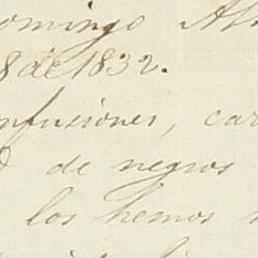 omingo Al
8 de 1832.
nfusiones, car
de negros
los hemos